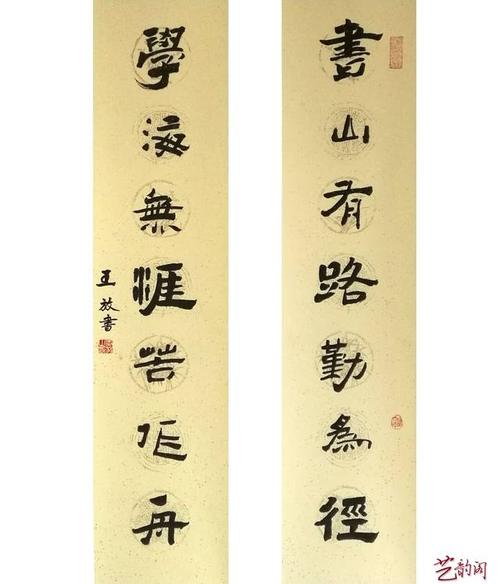 書山有路勤為徑
學海無涯苦作舟
王放書
艺韵阁